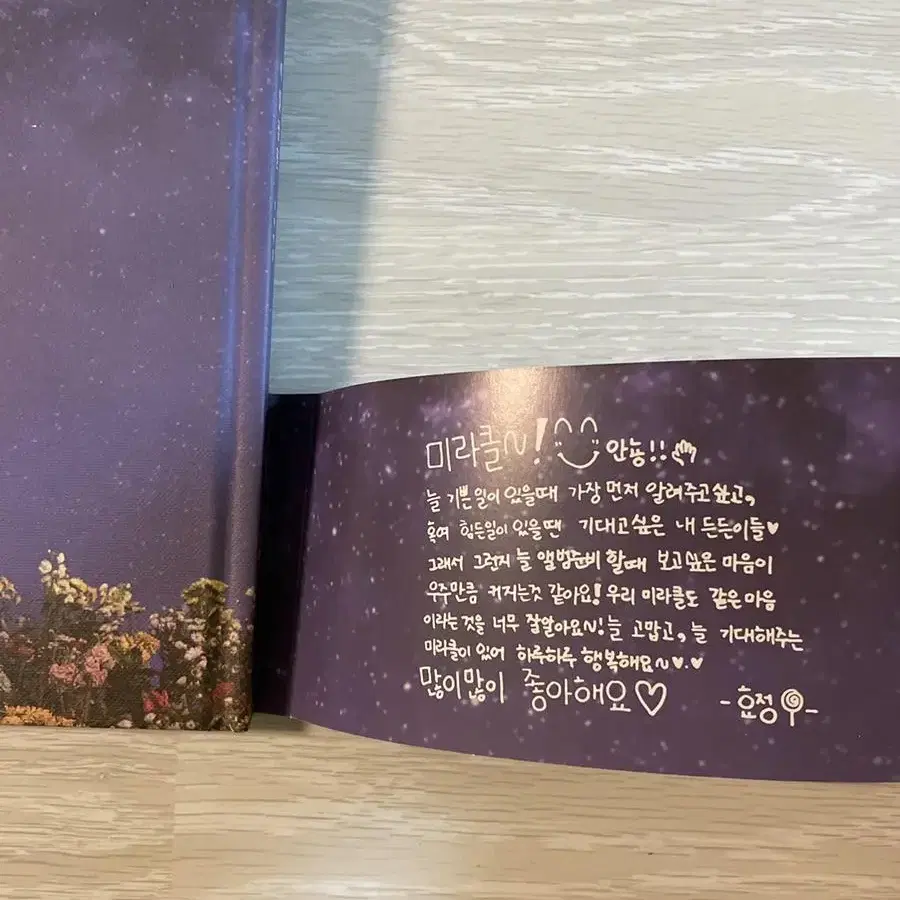 미라클~! 안뇽!!
늘 기쁜일이 있을때 가장 먼저 알려주고싶고,
혹여 힘든일이 있을땐 기대고싶은 내 든든이들♥
그래서 그런지 늘 앨범준비 할때 보고싶은 마음이
우주만큼 커지는것 같아요! 우리 미라클도 같은마음
이라는것을 너무 잘알아요~! 늘 고맙고, 늘 기대해주는
미라클이 있어 하루하루 행복해요~♥.♥
많이많이 좋아해요♡ -효정-